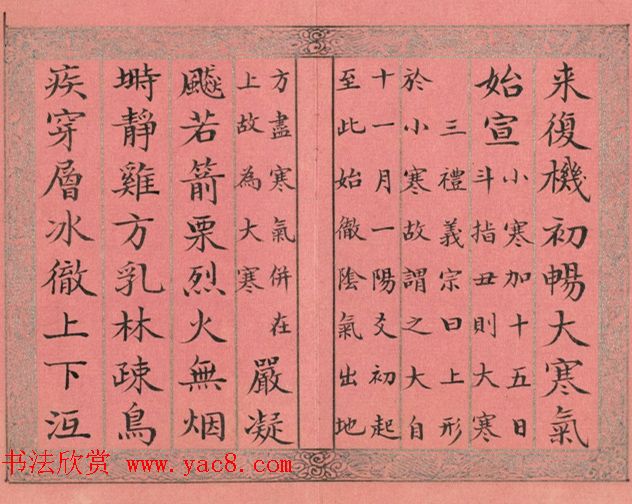 来復機初暢大寒氣
始宣
小寒加十五日
斗指丑則大寒
三禮義宗曰上形
於小寒故謂之大自
十一月一陽爻初起
至此始徹陰氣出地
方盡寒氣併在
上故為大寒
嚴凝
飈若箭栗烈火無烟
塒靜雞方乳林疎鳥
疾穿層冰徹上下沍
书法欣赏 www.yac8.com